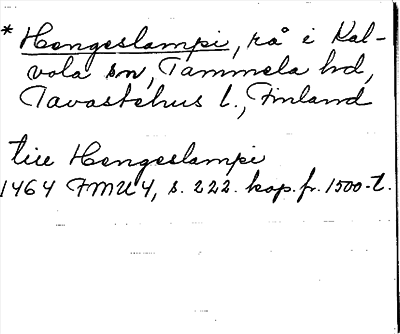 * Hengeslampi, rå i Kal-
vola sn, Tammela hd,
Tavastehus l., Finland
tiil Hengeslampi
1464 FMU 4, s. 222. kop. fr. 1500-t.